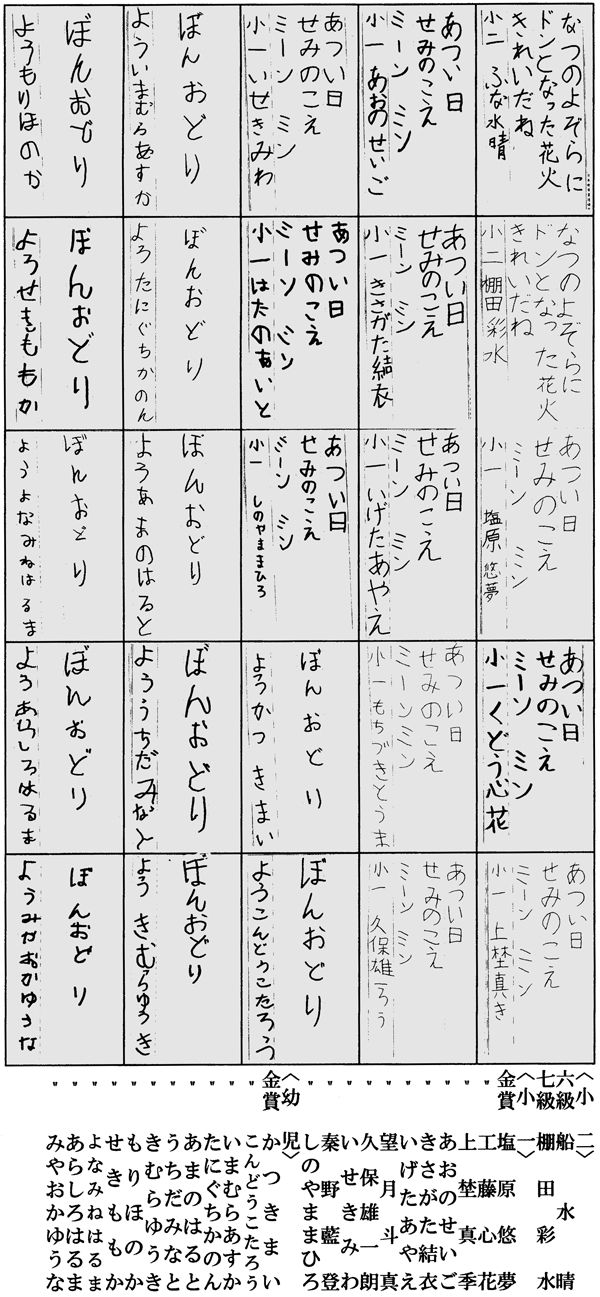 なつのよぞらに
ドンとなった花火
きれいだね
小二 ふな水晴
なつのよぞらに
ドンとなった花火
きれいだね
小二 棚田彩水
あつい日
せみのこえ
ミーン ミン
小一 塩原悠夢
あつい日
せみのこえ
ミーン ミン
小一 くどう心花
あつい日
せみのこえ
ミーン ミン
小一 上埜真き
あつい日
せみのこえ
ミーン ミン
小一 あおのせいご
あつい日
せみのこえ
ミーン ミン
小一 きさがた結衣
あつい日
せみのこえ
ミーン ミン
小一 いげたあやえ
あつい日
せみのこえ
ミーンミン
小一 もちづきとうま
あつい日
せみのこえ
ミーン ミン
小一 久保雄一ろう
あつい日
せみのこえ
ミーン ミン
小一 いせきみわ
あつい日
せみのこえ
ミーン ミン
小一 はたのあいと
あつい日
せみのこえ
ミーン ミン
小一 しのやままひろ
ぼんおどり
ようかつきまい
ぼんおどり
ようこんどうこたろう
ぼんおどり
よういまむらあすか
ぼんおどり
ようたにぐちかのん
ぼんおどり
ようあまのはると
ぼんおどり
よううちだみなと
ぼんおどり
ようきむらゆうき
ぼんおどり
ようもりほのか
ぼんおどり
ようせきももか
ぼんおどり
ようよなみねはるま
ぼんおどり
ようあらしろはるま
ぼんおどり
ようみやおかゆうな
〈小二〉
六級 船水晴
七級 棚田彩水
〈小一〉
金賞 塩原悠夢
〃 工藤心花
〃 上埜真季
〃 あおのせいご
〃 きさがた結衣
〃 いげたあやえ
〃 望月斗真
〃 久保雄一朗
〃 いせきみわ
〃 秦野藍登
〃 しのやままひろ
〈幼児〉
金賞 かつきまい
〃 こんどうこたろう
〃 いまむらあすか
〃 たにぐちかのん
〃 あまのはると
〃 うちだみなと
〃 きむらゆうき
〃 もりほのか
〃 せきももか
〃 よなみねはるま
〃 あらしろはるま
〃 みやおかゆうな